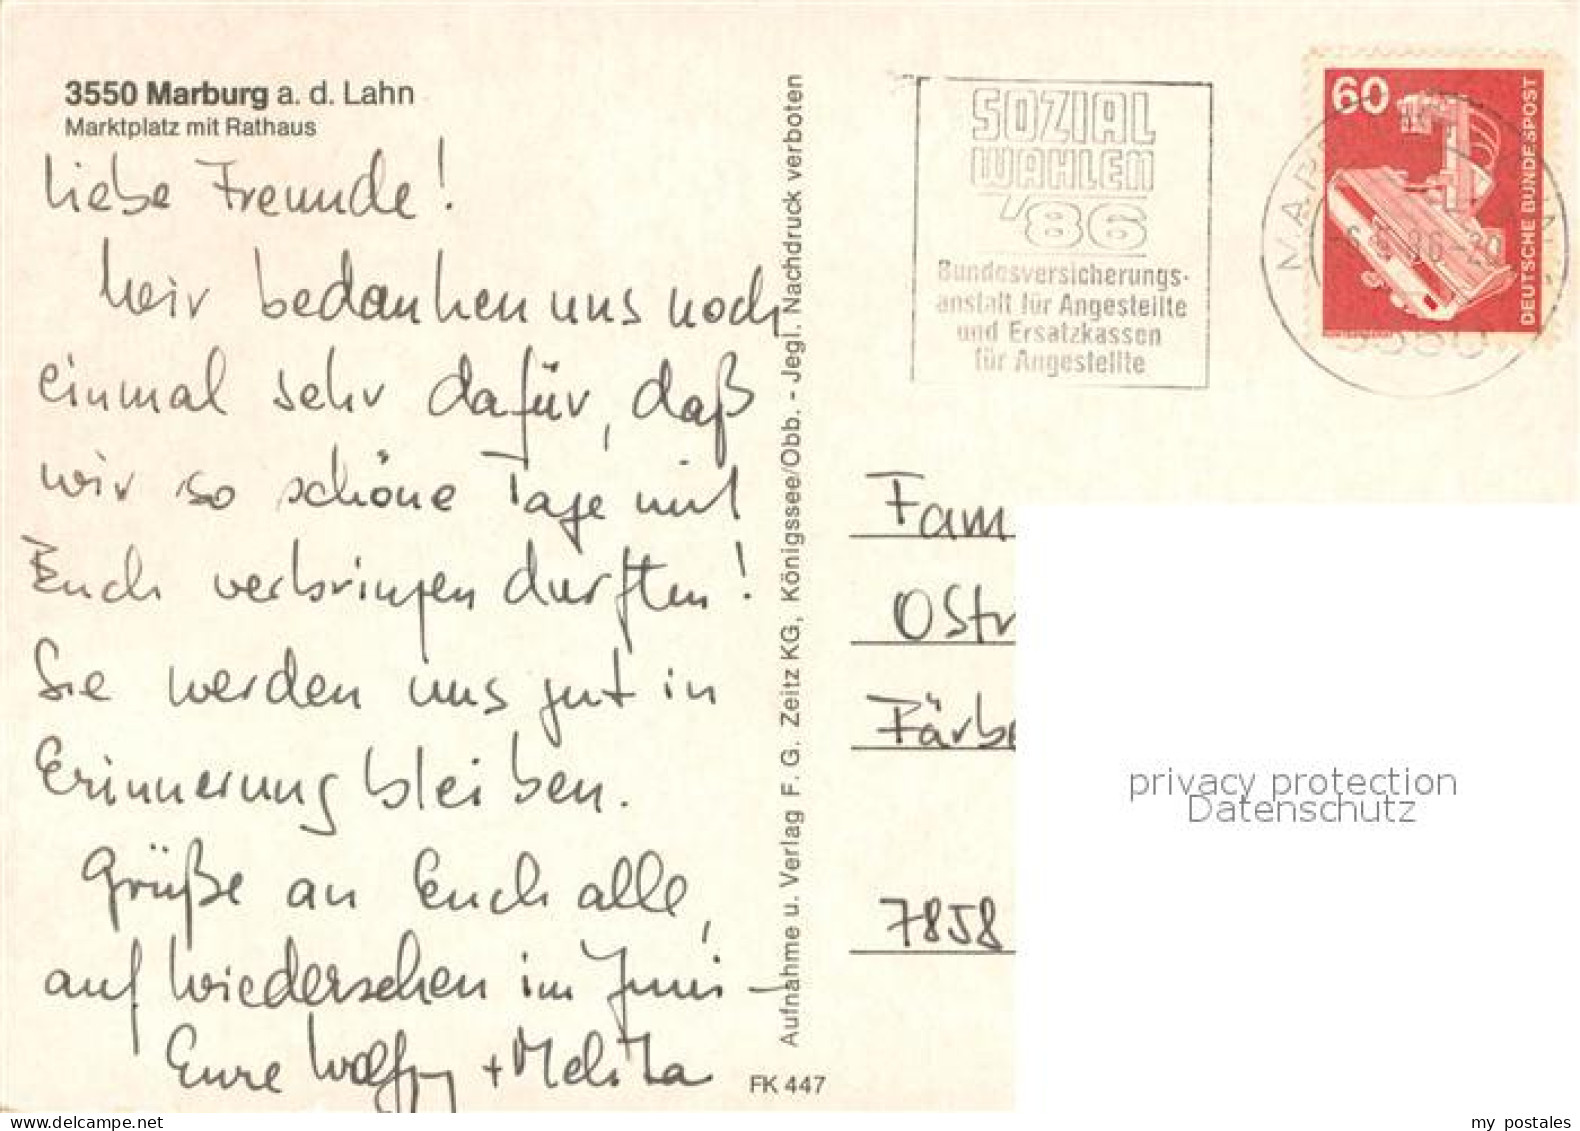 3550 Marburg a. d. Lahn
Marktplatz mit Rathaus
Liebe Freunde!
Wir bedanken uns noch
einmal sehr dafür, daß
wir so schöne Tage mit
Euch verbringen durften!
Sie werden uns gut in
Erinnerung bleiben.
Grüße an Euch alle,
auf Wiedersehen im Juni –
Eure Wolfgang + Melitta
Aufnahme u. Verlag F. G. Zeitz KG, Königssee/Obb. - Jegl. Nachdruck verboten
FK 447
SOZIAL
WAHLEN
'86
Bundesversicherungs-
anstalt für Angestellte
und Ersatzkassen
für Angestellte
60
DEUTSCHE BUNDESPOST
Fam
OStr
Färbe
7858
privacy protection
Datenschutz
my postales